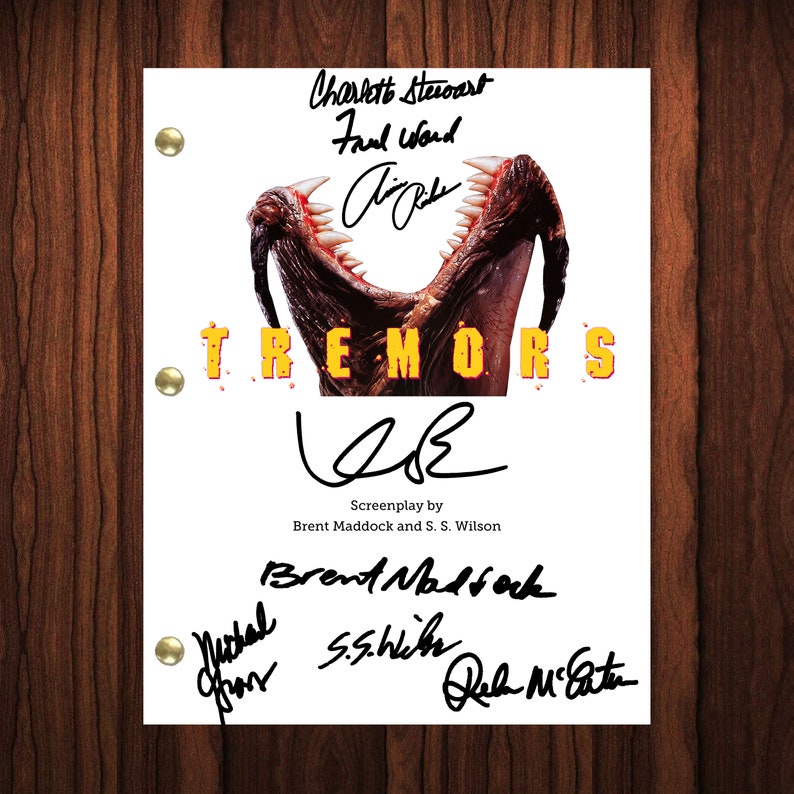 Charlotte Stewart
Fred Ward
TREMORS
Screenplay by
Brent Maddock and S. S. Wilson
Brent Maddock
Michael Gross
S.S. Wilson
Reba McEntire